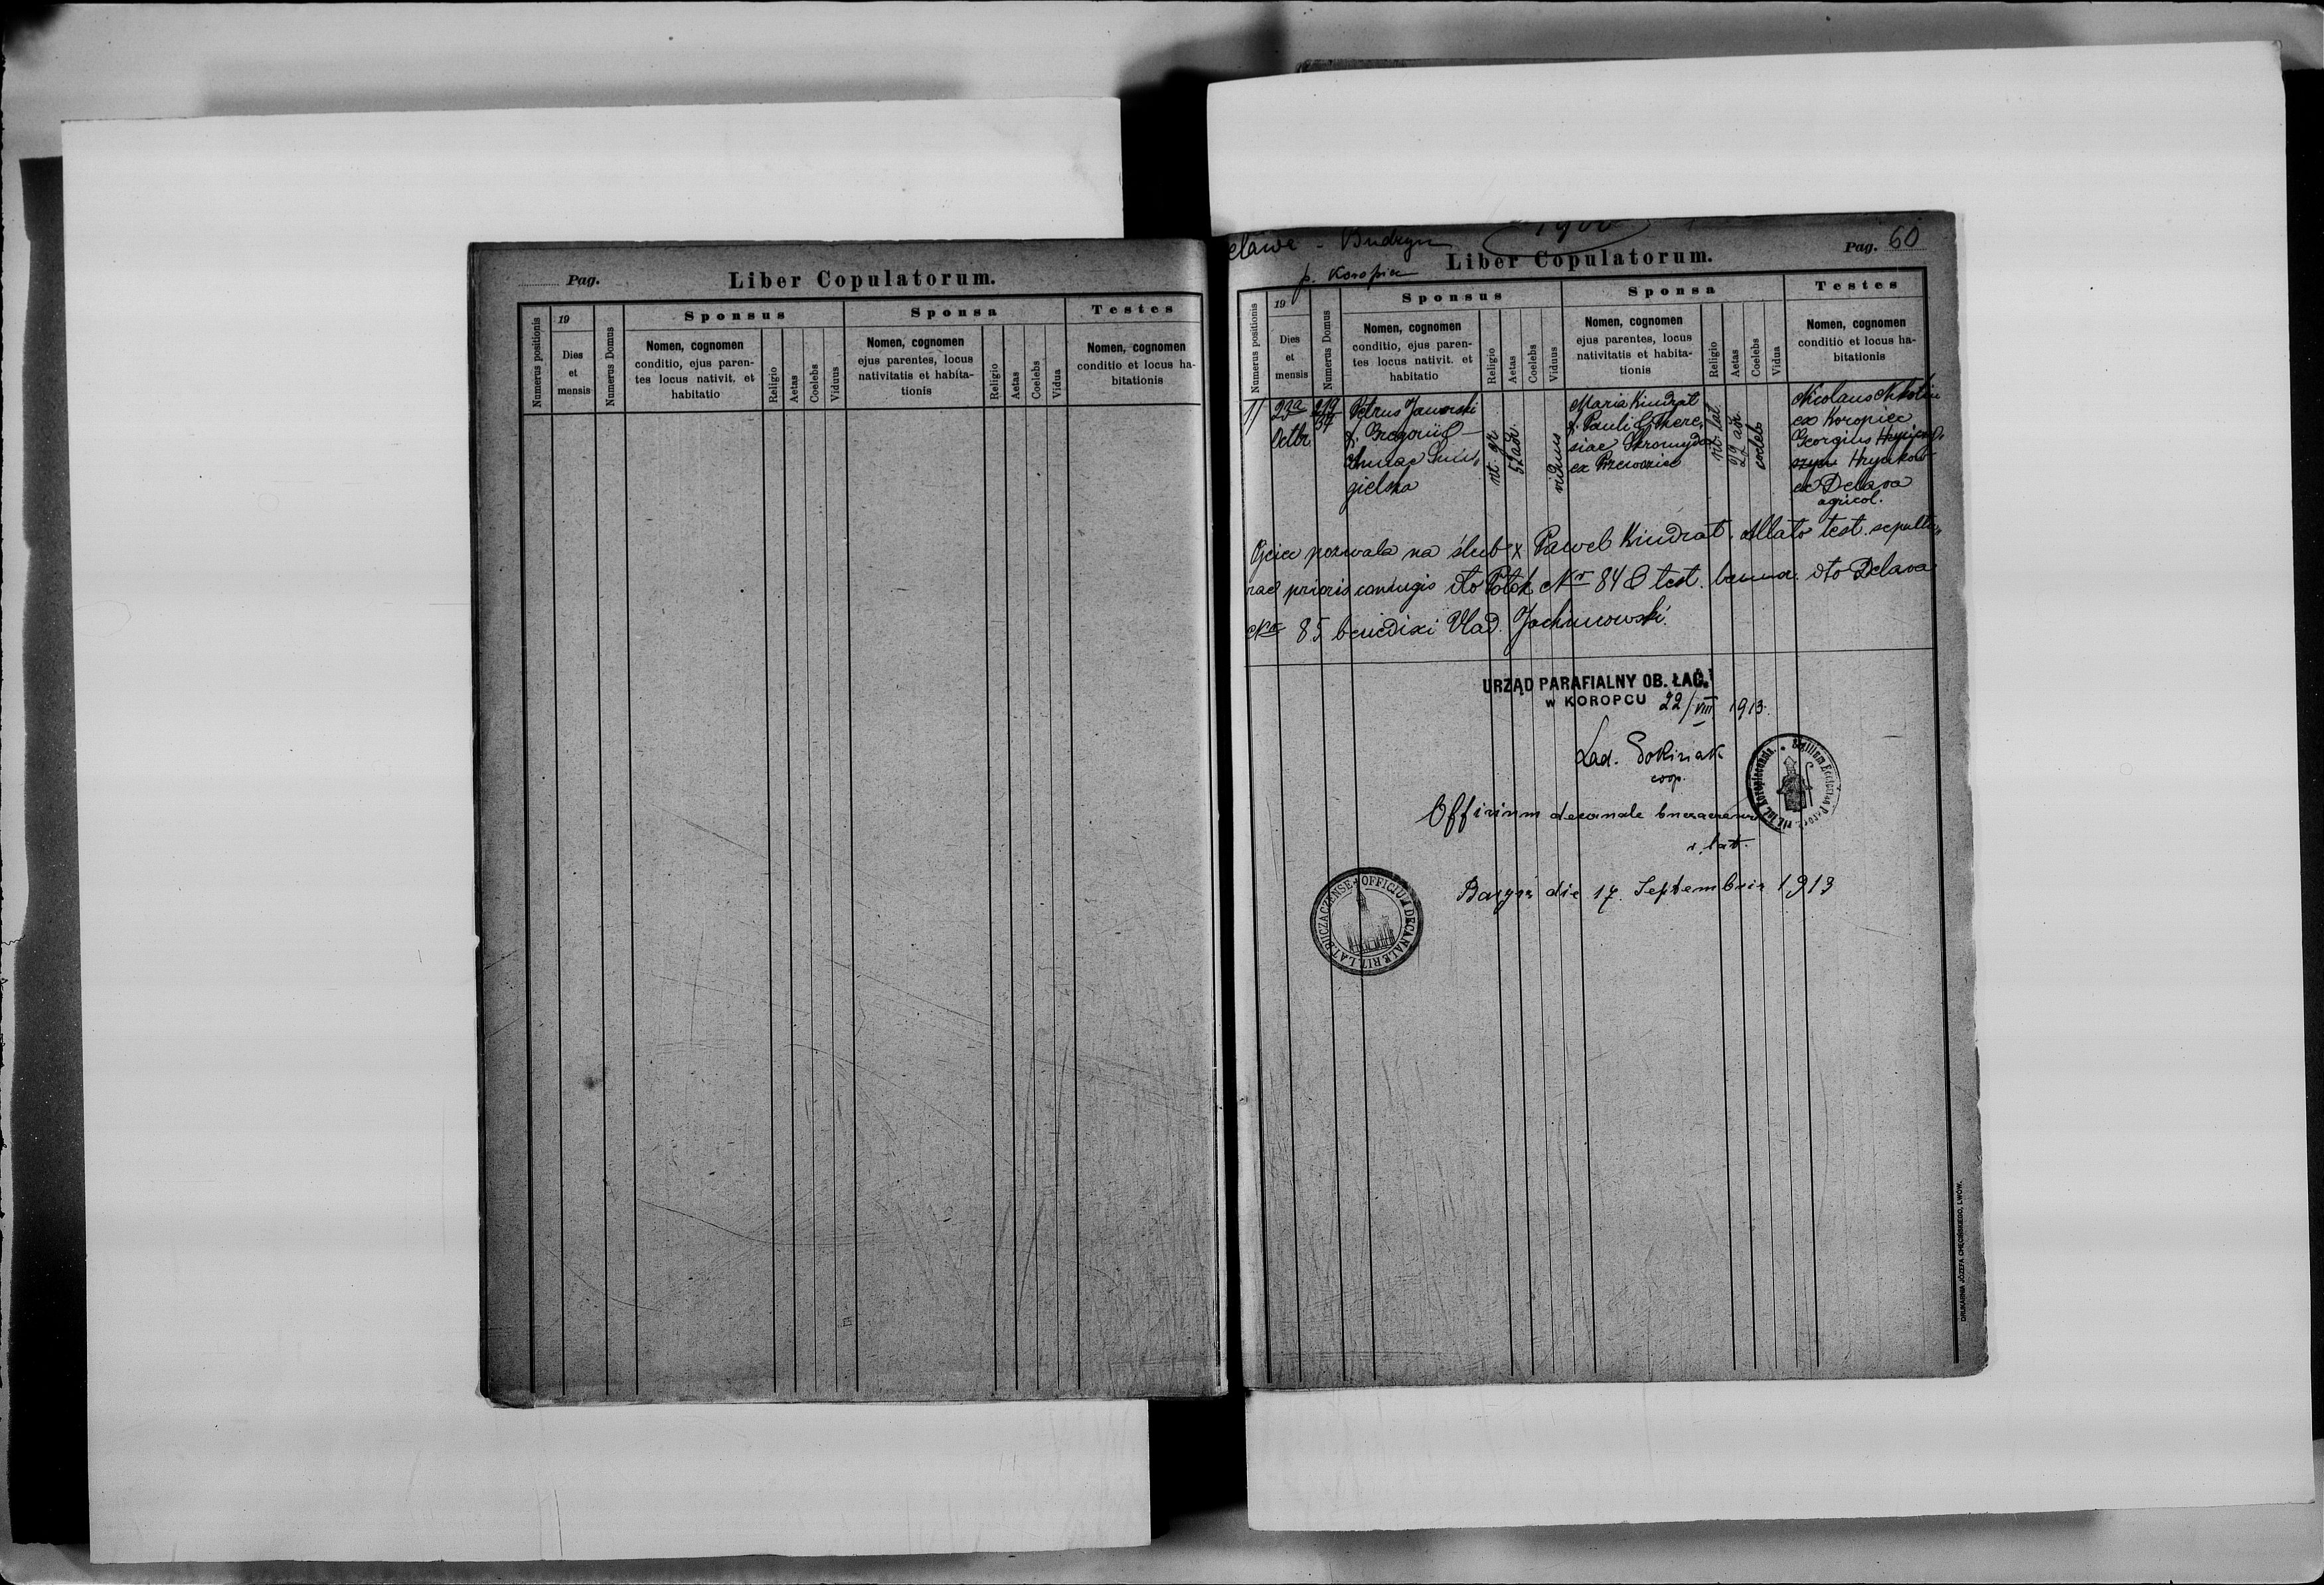 Pag.
Liber Copulatorum.
Numerus positionis
19
Dies
et
mensis
Numerus Domus
Sponsus
Nomen, cognomen
conditio, ejus paren-
tes locus nativit. et
habitatio
Religio
Aetas
Coelebs
Viduus
Sponsa
Nomen, cognomen
ejus parentes, locus
nativitatis et habita-
tionis
Religio
Aetas
Coelebs
Vidua
Testes
Nomen, cognomen
conditio et locus ha-
bitationis
Pag. 60
Liber Copulatorum.
Numerus positionis
19
Dies
et
mensis
Numerus Domus
Sponsus
Nomen, cognomen
conditio, ejus paren-
tes locus nativit. et
habitatio
Religio
Aetas
Coelebs
Viduus
Sponsa
Nomen, cognomen
ejus parentes, locus
nativitatis et habita-
tionis
Religio
Aetas
Coelebs
Vidua
Testes
Nomen, cognomen
conditio et locus ha-
bitationis
11
Octbr
Petrus Jaworski
gielska
rit. gr.
52
viduus
Maria Kindrat
f. Pauli & There,
siae
ex
rit. lat
22
coelebs
Nicolaus
ex Koropiec
Georgius
ex Delava
agricol.
Ojciec pozwala na ślub x Paweł Kindrat. Allato test. sepultu,,
rae prioris coniugis dto Potok Nr 84 & test. bann. dto Delava
Nr 85 benedixi Vlad. Jachimowski.
URZĄD PARAFIALNY OB. ŁAĆ.
w KOROPCU 22/VIII 1913.
coop.
Officium decanale
r. lat.
die 17. Septembris 1913
OFFICIUM DECANALE RIT. LAT. BUCZACZENSE
DRUKARNIA JÓZEFA CHĘCIŃSKIEGO, LWÓW.